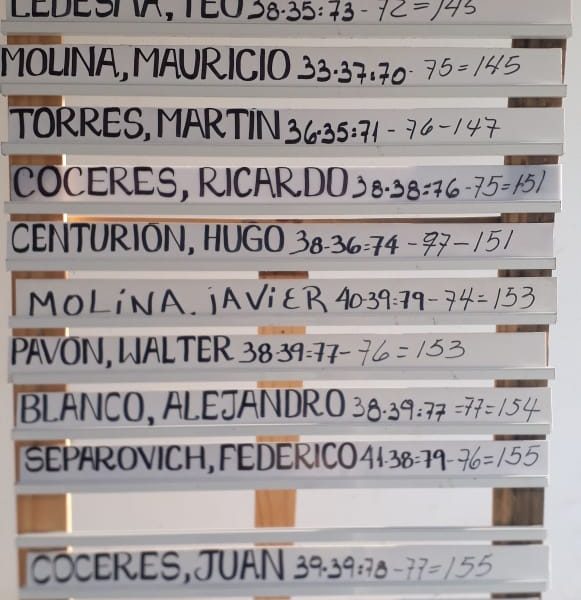 LEDESMA, TEO 38-35:73 - 72=145
MOLINA, MAURICIO 33.37:70- 75=145
TORRES, MARTIN 36.35:71 - 76-147
COCERES, RICARDO 38.38=76 -75=151
CENTURIÓN, HUGO 38-36=74 -77-151
MOLiNA. jAViER 40-39=79- 74=153
PAVÓN, WALTER 38-39=77- 76=153
BLANCO, ALEJANDRO 38.39:77 =77=154
SEPAROVICH, FEDERICO 41.38=79-76=155
COCERES, JUAN 39.39:78 -77=155